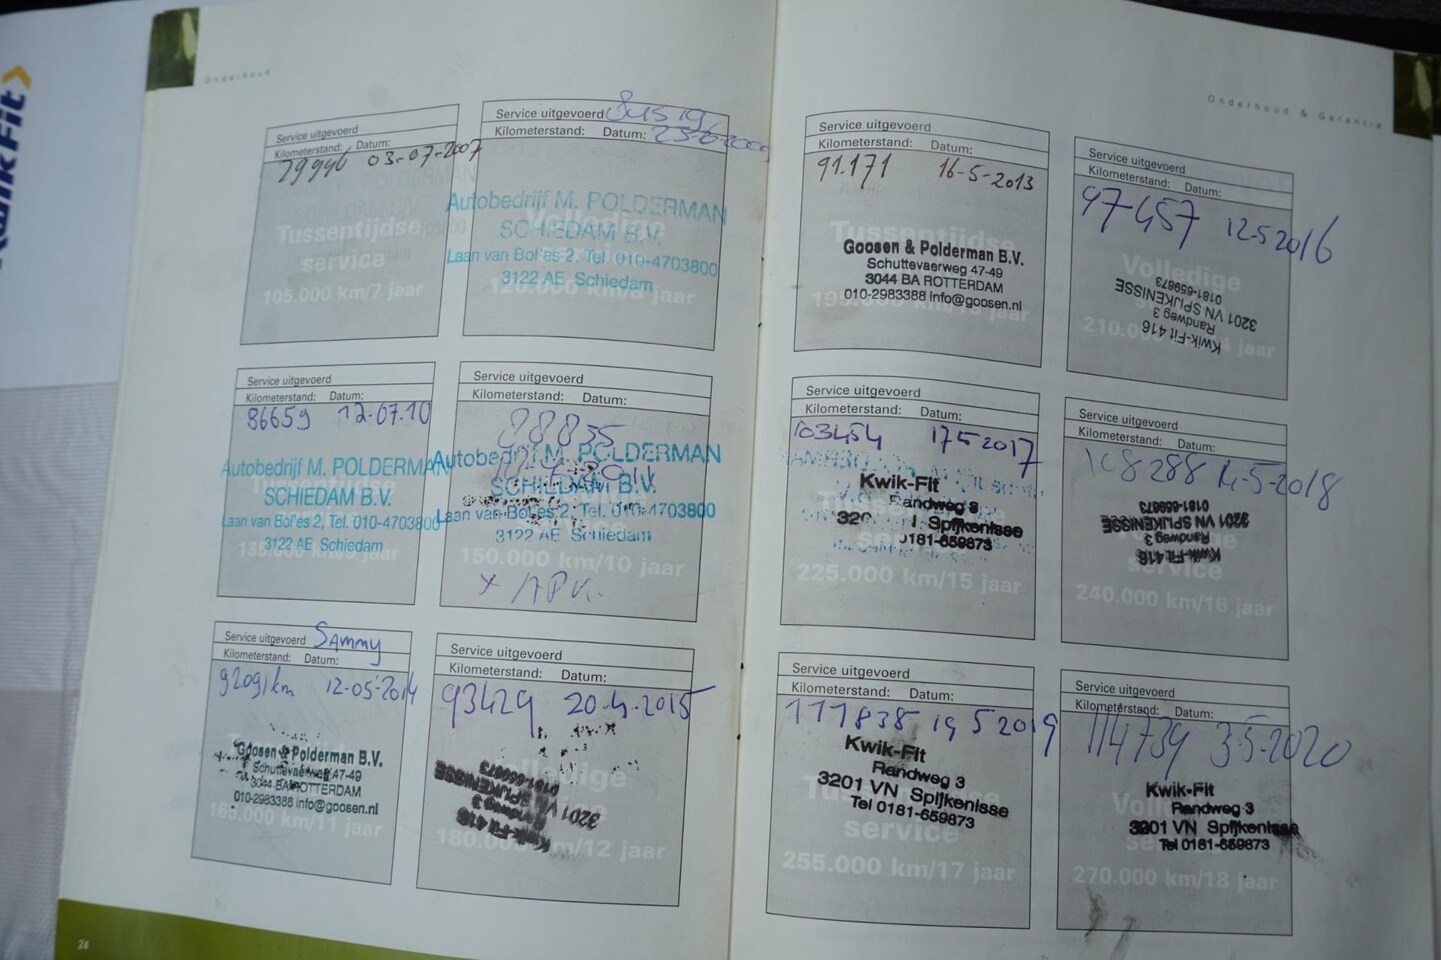 KwikFit
Onderhoud
Service uitgevoerd
Kilometerstand: Datum:
79946 03-07-2007
Tussentijdse
service
105.000 km/7 jaar
Service uitgevoerd
Kilometerstand: Datum:
Autobedrijf M. POLDERMAN
SCHIEDAM B.V.
Laan van Bol'es 2, Tel. 010-4703800
3122 AE Schiedam
Volledige
120.000 km/8 jaar
Service uitgevoerd
Kilometerstand: Datum:
86659 12-07-10
Autobedrijf M. POLDERMAN
SCHIEDAM B.V.
Laan van Bol'es 2, Tel. 010-4703800
3122 AE Schiedam
Tussentijdse
135.000 km/9 jaar
Service uitgevoerd
Kilometerstand: Datum:
88855
Autobedrijf M. POLDERMAN
SCHIEDAM B.V.
Laan van Bol'es 2, Tel. 010-4703800
3122 AE Schiedam
150.000 km/10 jaar
+ APK.
Service uitgevoerd Sammy
Kilometerstand: Datum:
92091km 12-05-2014
Goosen & Polderman B.V.
Schuttevaerweg 47-49
3044 BA ROTTERDAM
010-2983388 info@goosen.nl
165.000 km/11 jaar
Service uitgevoerd
Kilometerstand: Datum:
93429 20-4-2015
Volledige
Kwik-Fit 416
Randweg 3
3201 VN SPIJKENISSE
0181-659873
180.000 km/12 jaar
24
Onderhoud & Garantie
Service uitgevoerd
Kilometerstand: Datum:
91.171 16-5-2013
Tussentijdse
Goosen & Polderman B.V.
Schuttevaerweg 47-49
3044 BA ROTTERDAM
010-2983388 info@goosen.nl
Service uitgevoerd
Kilometerstand: Datum:
97457 12-5-2016
Volledige
Kwik-Fit 416
Randweg 3
3201 VN SPIJKENISSE
0181-659873
210.000 jaar
Service uitgevoerd
Kilometerstand: Datum:
103454 17 5 2017
Kwik-Fit
Randweg 3
Spijkenisse
0181-659873
225.000 km/15 jaar
Service uitgevoerd
Kilometerstand: Datum:
108288 14-5-2018
Kwik-Fit 416
Randweg 3
3201 VN SPIJKENISSE
0181-659873
service
240.000 km/16 jaar
Service uitgevoerd
Kilometerstand: Datum:
111838 19 5 2019
Kwik-Fit
Randweg 3
3201 VN Spijkenisse
Tel 0181-659873
service
255.000 km/17 jaar
Service uitgevoerd
Kilometerstand: Datum:
114739 3-5-2020
Kwik-Fit
Randweg 3
3201 VN Spijkenisse
Tel 0181-659873
270.000 km/18 jaar